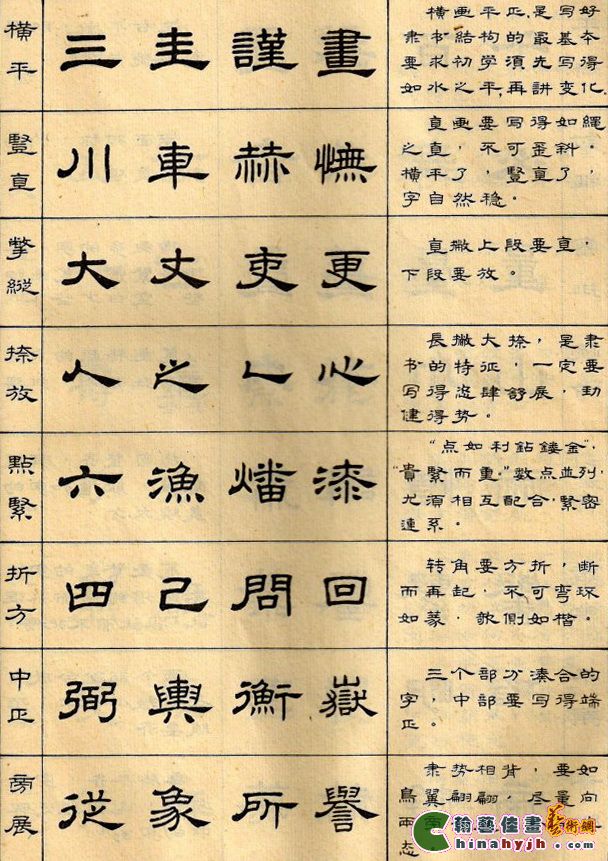 橫平
三 圭 謹 畫
橫画平正,是写好
隶书結构的最基本
要求初学須先写得
如水之平,再講变化.
豎直
川 車 赫 憮
直画要写得如繩
之直,不可歪斜,
橫平了,豎直了,
字自然稳。
撆縱
大 丈 吏 更
直撇上段要直,
下段要放。
捺放
人 之 心
長撇大捺,是隶
书的特征,一定要
写得恣肆舒展,劲
健得势。
點緊
六 漁 燔 漆
"点如利鉆鏤金",
"貴緊而重."数点並列,
尤須相互配合,緊密
連系。
折方
四 己 問 回
转角要方折,断
而再起,不可弯环
如篆,欹側如楷。
中正
弼 輿 衡 嶽
三个部分湊合的
字,中部要写得端
正。
旁展
從 象 所 譽
隶势相背,要如
鳥翼翩,尽量向
兩
态
翰藝佳畫藝術網
hinahyjh.com